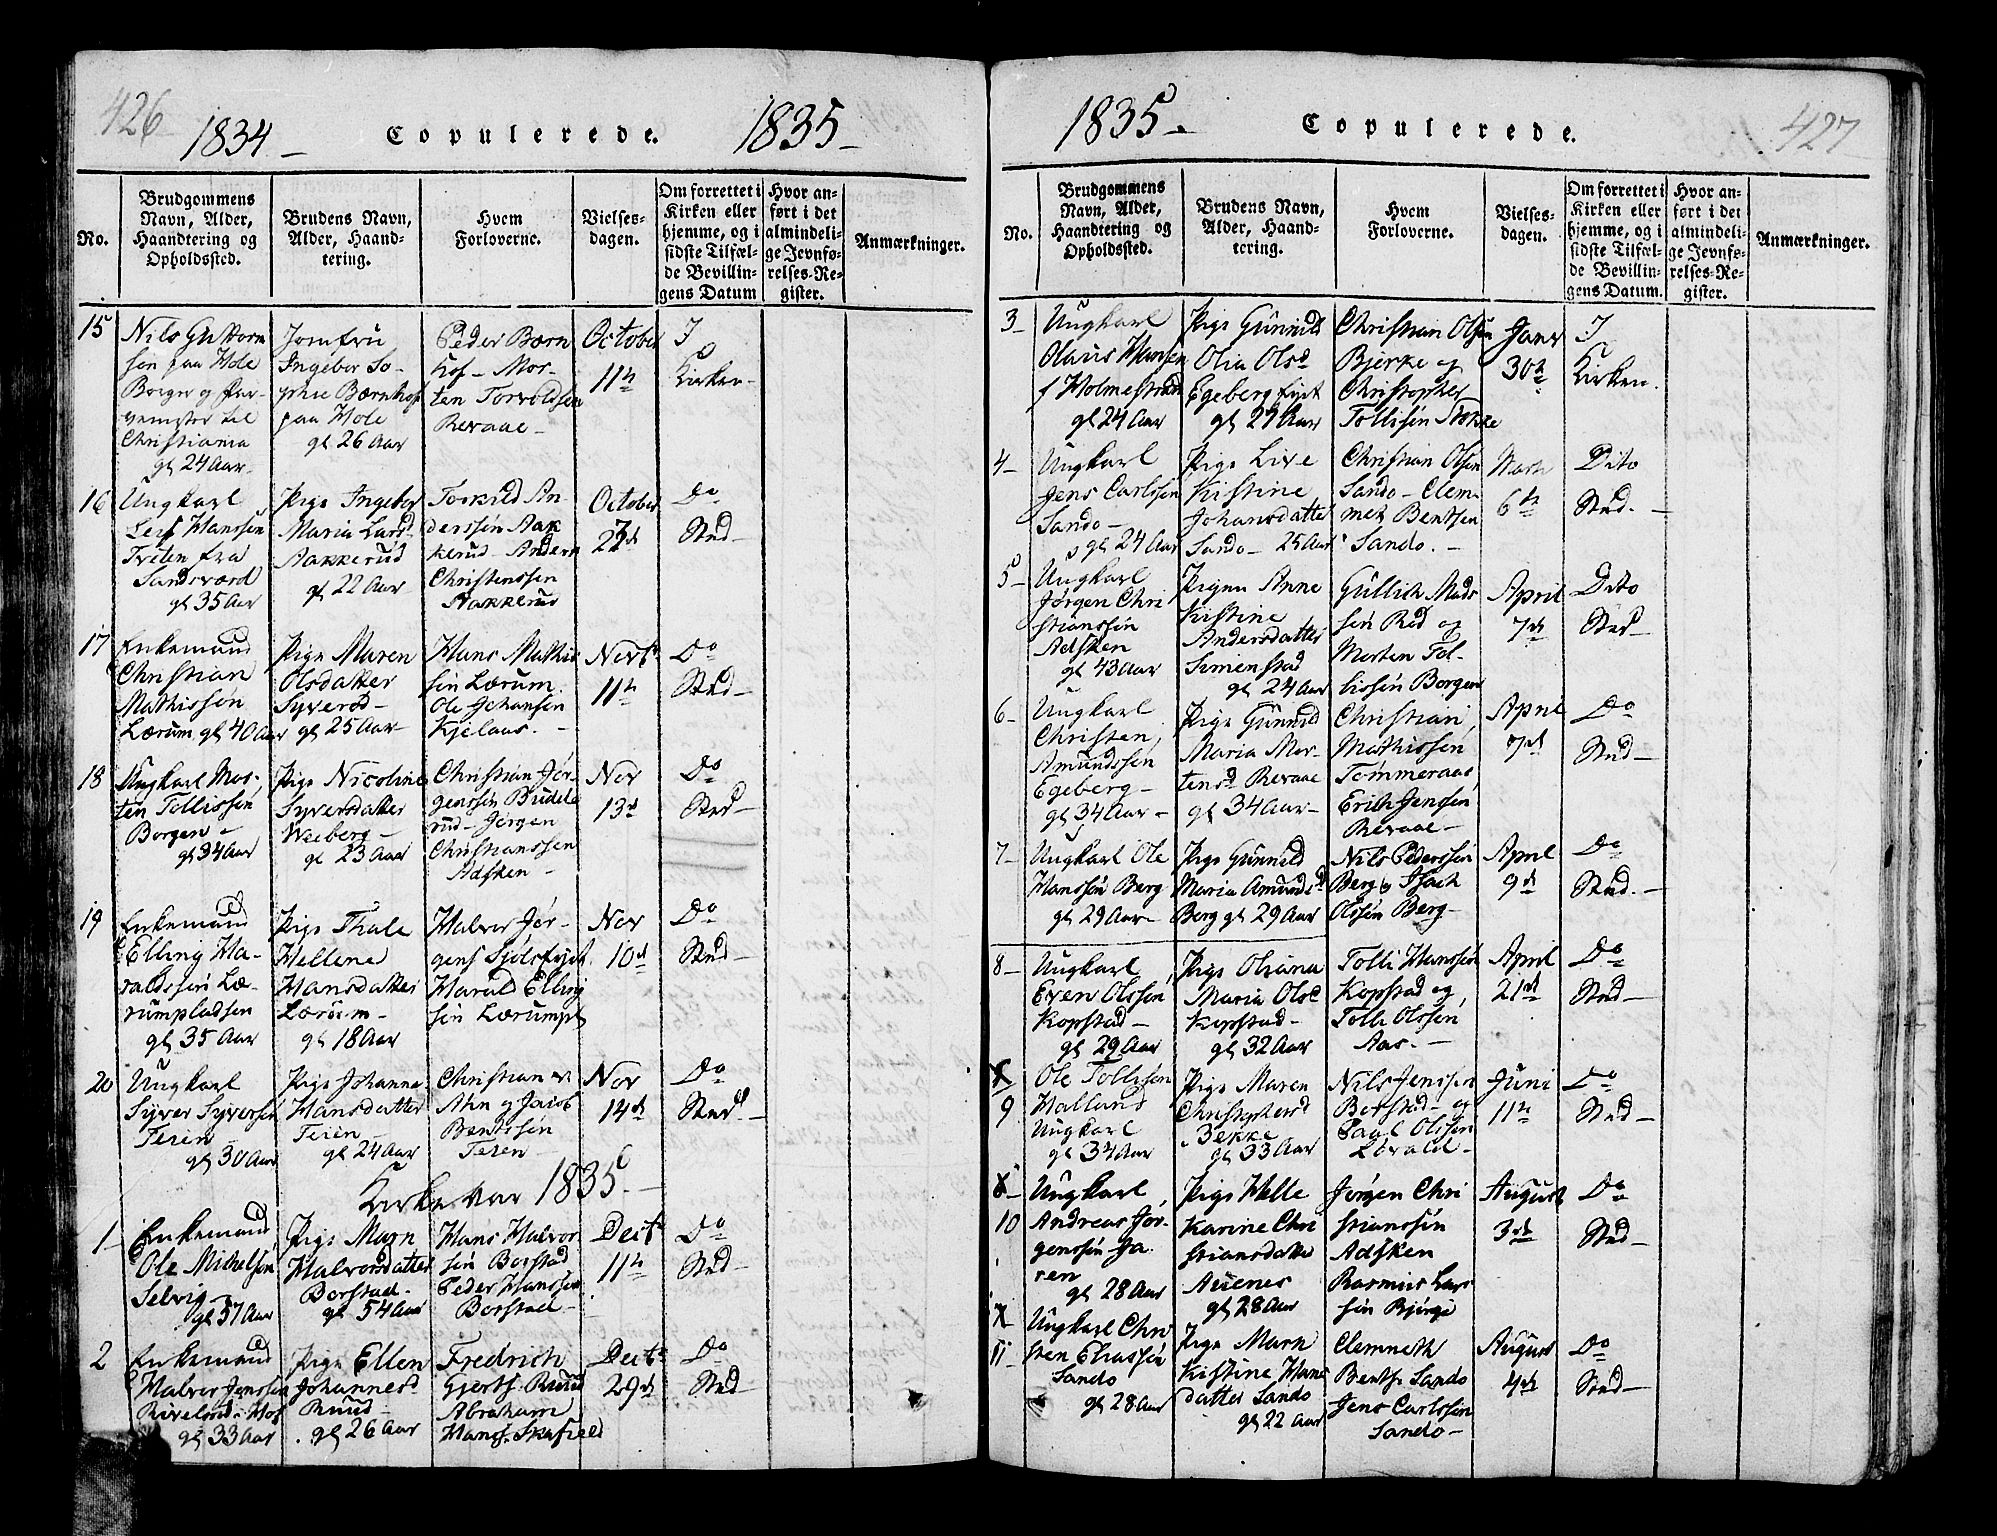 426
1834 –
Copulerede.
1835 –
No.
Brudgommens
Navn, Alder,
Haandtering og
Opholdssted.
Brudens Navn,
Alder, Haand-
tering.
Hvem
Forloverne.
Vielses-
dagen.
Om forrettet i
Kirken eller
hjemme, og i
sidste Tilfæl-
de Bevillin-
gens Datum
Hvor an-
ført i det
almindeli-
ge Jevnfø-
relses-Re-
gister.
Anmærkninger.
15
Nils Guttorm
sön paa Hole
Borger og Far-
vemester til
Christiania
gl 24 Aar –
Jomfru
Ingebor So-
phie Bærnhof
paa Hole
gl 26 Aar
Peder Bærn
hof – Mor-
ten Torvoldsen
Revaae –
October
11te
I
Kirken –
16
Ungkarl
Leif Hanssen
Tveten fra
Sandsværd
gl 35 Aar
Pige Ingebor
Maria Larsd
Aakkerud
gl 22 Aar –
Torkild An-
derssön Aak
kerud – Anders
Christenssen
Aakkerud
October
22d
Do
Sted –
17
Enkemand
Christian
Mathissön
Lærum gl 40 Aar
Pige Maren
Olsdatter
Syverød –
gl 25 Aar –
Hans Mathis
sön Lærum.
Ole Johansen
Kjelaas. –
Novbr
11te
Do
Sted –
18
Ungkarl Mor-
ten Tollissen
Borgen –
gl 34 Aar
Pige Nicoline
Syversdatter
Weeberg –
gl 23 Aar
Christian Jör-
genssön Budele
rud – Jörgen
Christianssen
Adsken –
Nov
13d
Do
Sted –
19
Enkemand
Elling Ha-
raldssön Læ-
rumpladsen
gl 35 Aar
Pige Thale
Hellene
Hansdatter
Lærum –
gl 18 Aar
Halvor Jör-
gens Sjölsfyst.
Harald Elling
sön Lærumpl
Nov
10d
Do
Sted –
20
Ungkarl
Syver Syversen
Teien –
gl 30 Aar
Pige Johanne
Hansdatter
Teien –
gl 24 Aar
Christian
Ahn og Jacob
Bentssen
Teien –
Nov
14d
Do
Sted –
Kirke-Aar 1835 –
1
Enkemand
Ole Michelsön
Selvig –
gl 57 Aar
Pige Marn
Halvorsdatter
Borstad –
gl 54 Aar
Hans Halvor
sön Borstad
Peder Hanssen
Borstad –
Decbr
11te
Do
Sted –
2
Enkemand
Halvor Jenssen
gl 33 Aar
Pige Ellen
Johannesd
Ruud –
gl 26 Aar
Fredrich
Gjerts. Ruud
Abraham
Hans. Skafjeld
Decbr
29d
Do
Sted –
1835 –
Copulerede.
427
No.
Brudgommens
Navn, Alder,
Haandtering og
Opholdssted.
Brudens Navn,
Alder, Haand-
tering.
Hvem
Forloverne.
Vielses-
dagen.
Om forrettet i
Kirken eller
hjemme, og i
sidste Tilfæl-
de Bevillin-
gens Datum.
Hvor an-
ført i det
almindeli-
ge Jevnfø-
relses-Re-
gister.
Anmærkninger.
3 –
Ungkarl
Olaus Hansen
f Holmestrand
gl 24 Aar
Pige Gunnild
Olia Olsd
Egebergfyst
gl 29 Aar
Christian Olsen
Bjerke og
Christopher
Tollisön Stokke
Janr
30te
I
Kirken.
4 –
Ungkarl
Jens Carlssen
Sando –
gl 24 Aar
Pige Live
Kistine
Johansdatter
Sando – 25 Aar
Christian Olsen
Sando – Clem-
met Bentsen
Sando. –
Marts
6te
Dito
Sted. –
5 –
Ungkarl
Jörgen Chri
stianssön
Adsken
gl 43 Aar
Pigen Anne
Kistine
Andersdatter
Simenstad
gl 24 Aar
Gullich Mads
sön Röd og
Morten Tol-
lissön Borgen
April
7d
Dito
Sted –
6 –
Ungkarl
Christen
Amundssen
Egeberg –
gl 34 Aar –
Pige Gunnild
Maria Mor-
tensd Revaae
gl 34 Aar –
Christian
Mathissen
Tömmeraas
Erich Jenssen
Revaae –
April
7d
Do
Sted –
7 –
Ungkarl Ole
Hanssön Berg
gl 29 Aar –
Pige Gunnild
Maria Amundsd
Berg gl 29 Aar
Nils Pederssön
Berg og Isach
Olssön Berg –
April
9d
Do
Sted. –
8 –
Ungkarl
Even Olssen
Kopstad –
gl 29 Aar
Pige Oliana
Maria Olsd
Kopstad –
gl 32 Aar
Tolli Hanssen
Kopstad og
Tolli Olssen
Aas. –
April
21d
Do
Sted –
9
Ole Tollissen
Halland
Ungkarl
gl 34 Aar
Pige Maren
Christophersd
Bekke
gl 33 Aar
Nils Jenssen
Borstad – og
Paul Olssen
Lövald –
Juni
11te
Do
Sted –
10
Ungkarl
Andreas Jör-
genssön Ja-
ren
gl 28 Aar
Pige Helle
Karine Chri
stiansdatter
Auenes
gl 28 Aar
Jörgen Chri
stianssön
Adsken
Rasmus Lars
sön Bjerge
August
3d
Do
Sted –
11 –
Ungkarl Chri
sten Eliassön
Sando
gl 28 Aar
Pige Marn
Kistine Hans
datter Sando
gl 22 Aar
Clemmeth
Bents. Sando
Jens Carlssen
Sando –
August
4d
Do
Sted –